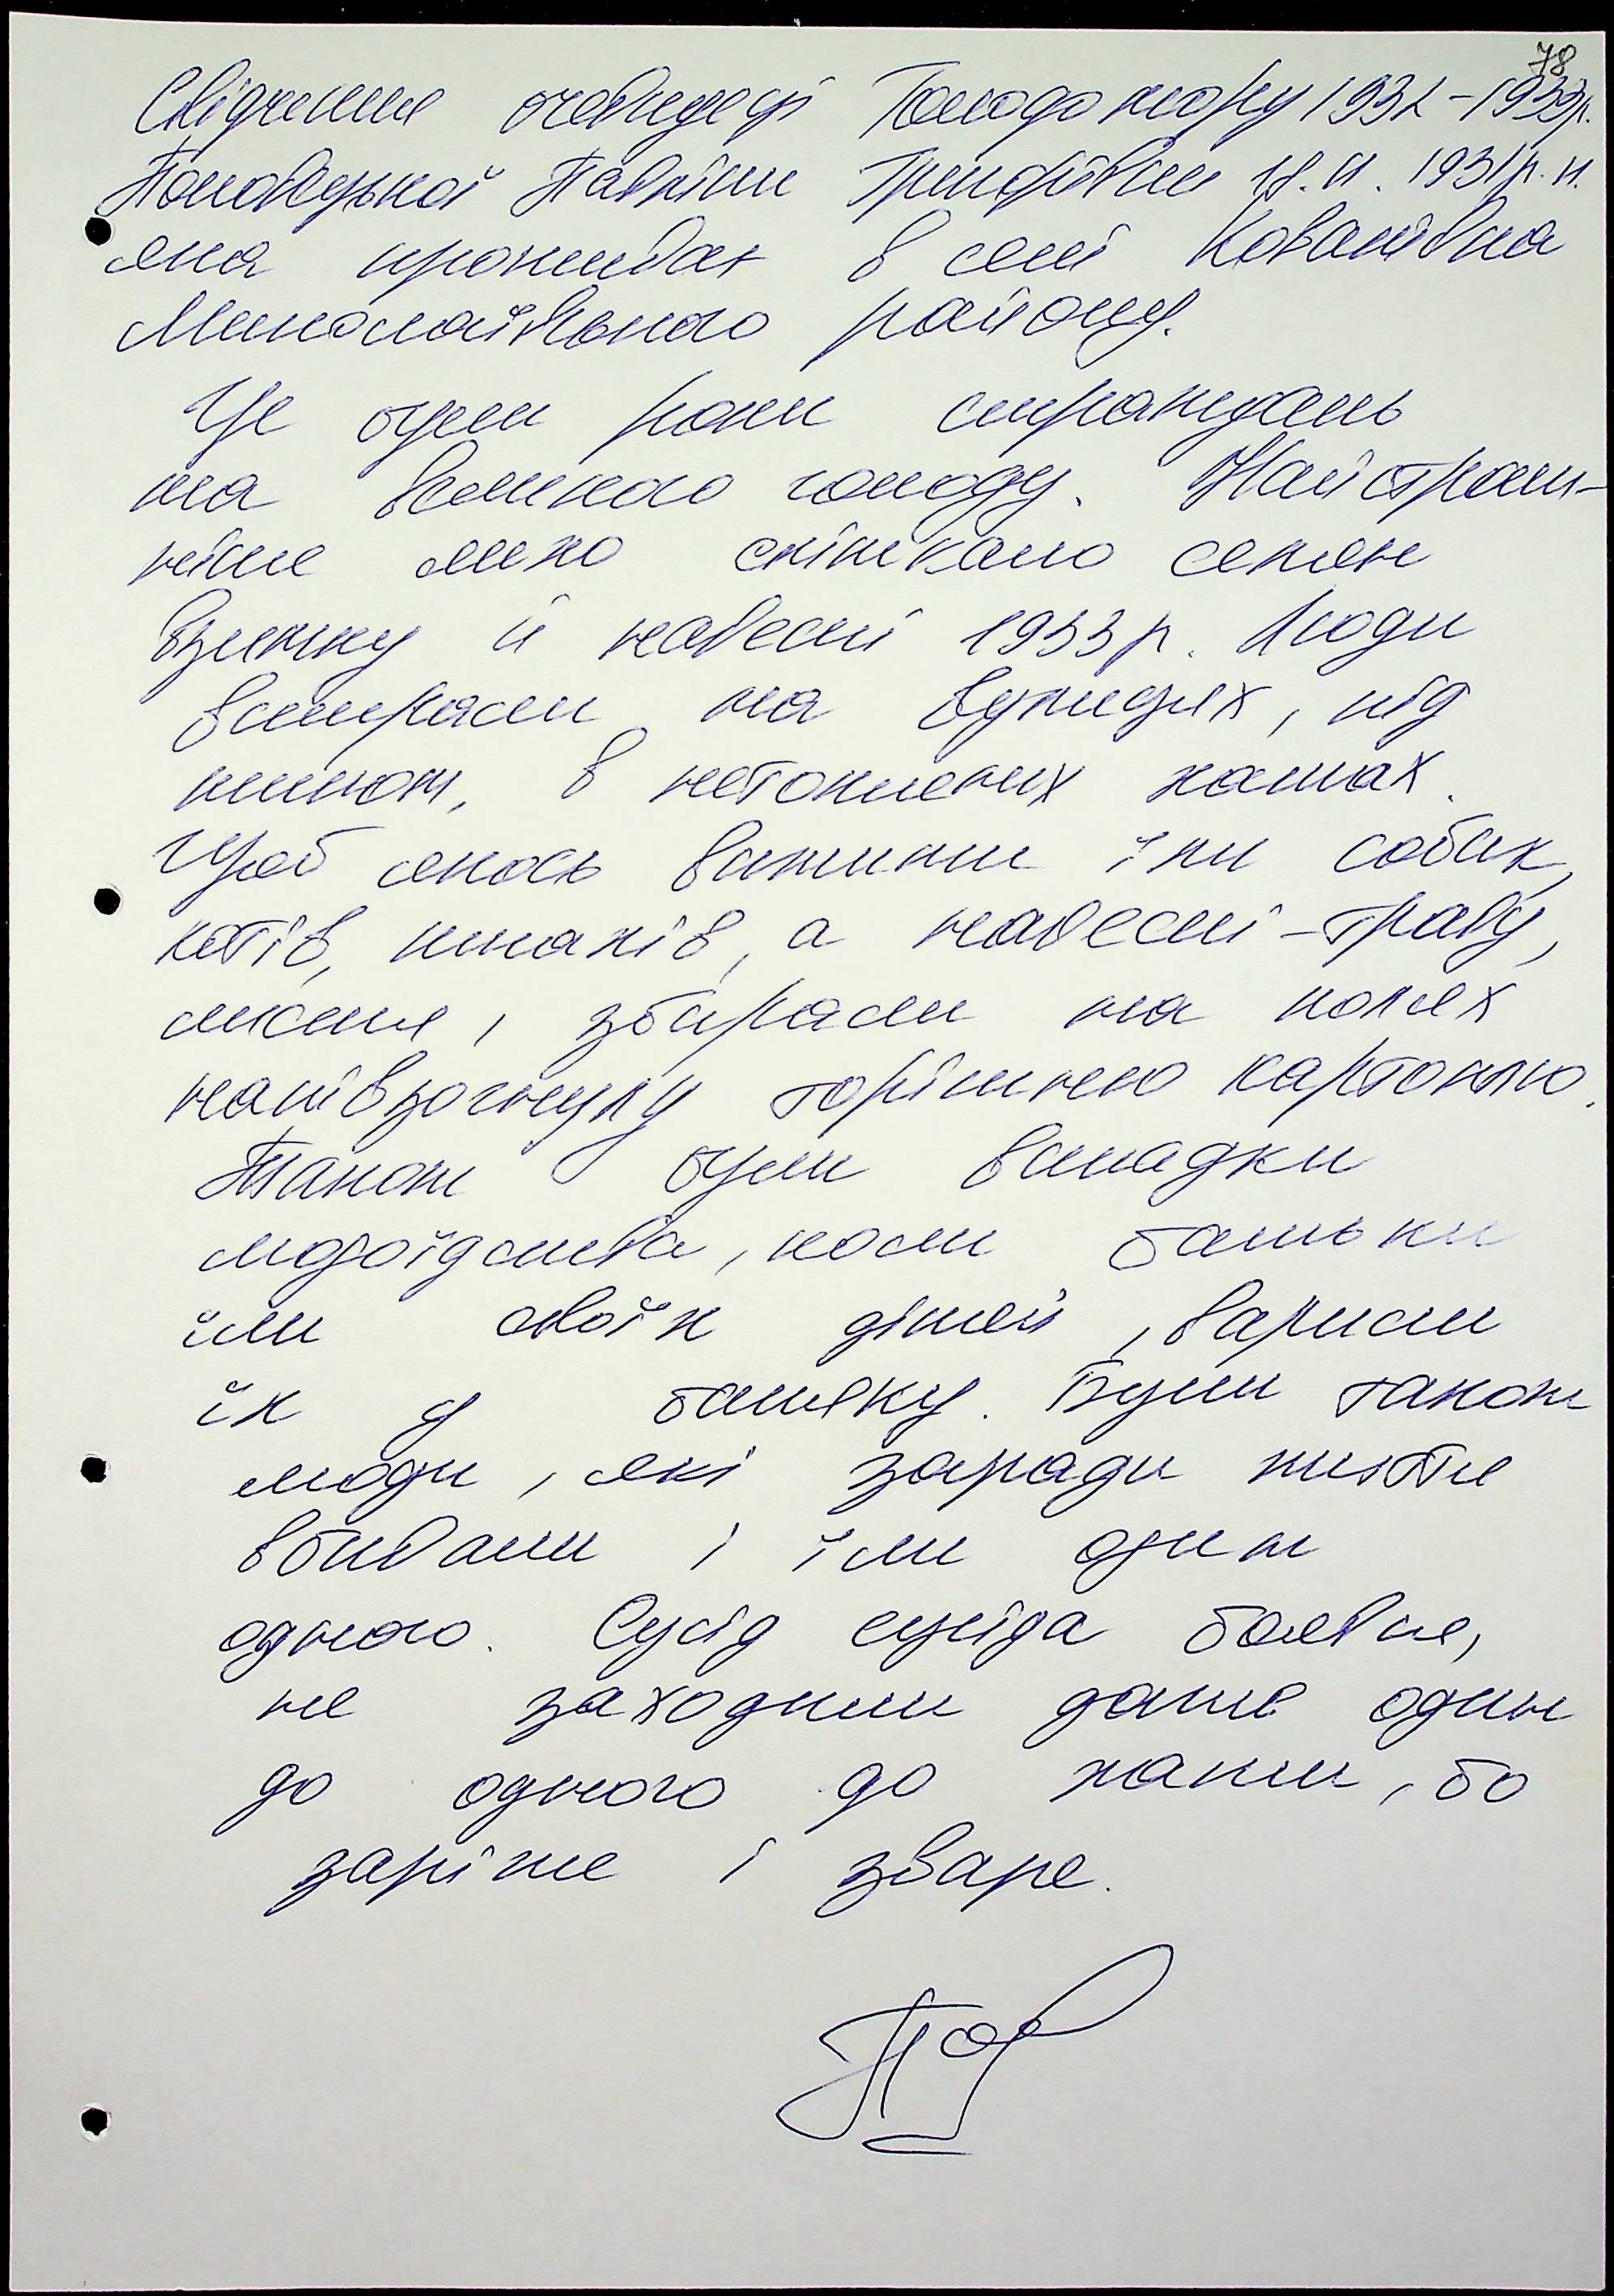 78
Свідчення очевидці Голодомору 1932-1933р.
Половецької Павліни Трифівни 18.II.1931р.н.
яка проживає в селі Ковалівка
Миколаївського району.
Це були роки страждань
та великого голоду. Найстраш-
ніше лихо спіткало селян
взимку й навесні 1933р. Люди
вмирали на вулицях, під
тином, в нетоплених хатах.
Щоб якось вижити їли собак,
котів, птахів, а навесні - траву,
листя, збирали на полях
напівзогнулу торішню картоплю.
Також були випадки
людоїдства, коли батьки
їли своїх дітей, варили
їх у баняку. Були також
люди, які заради життя
вбивали і їли один
одного. Сусід сусіда боявся,
не заходили даже один
до одного до хати, бо
заріже і зваре.